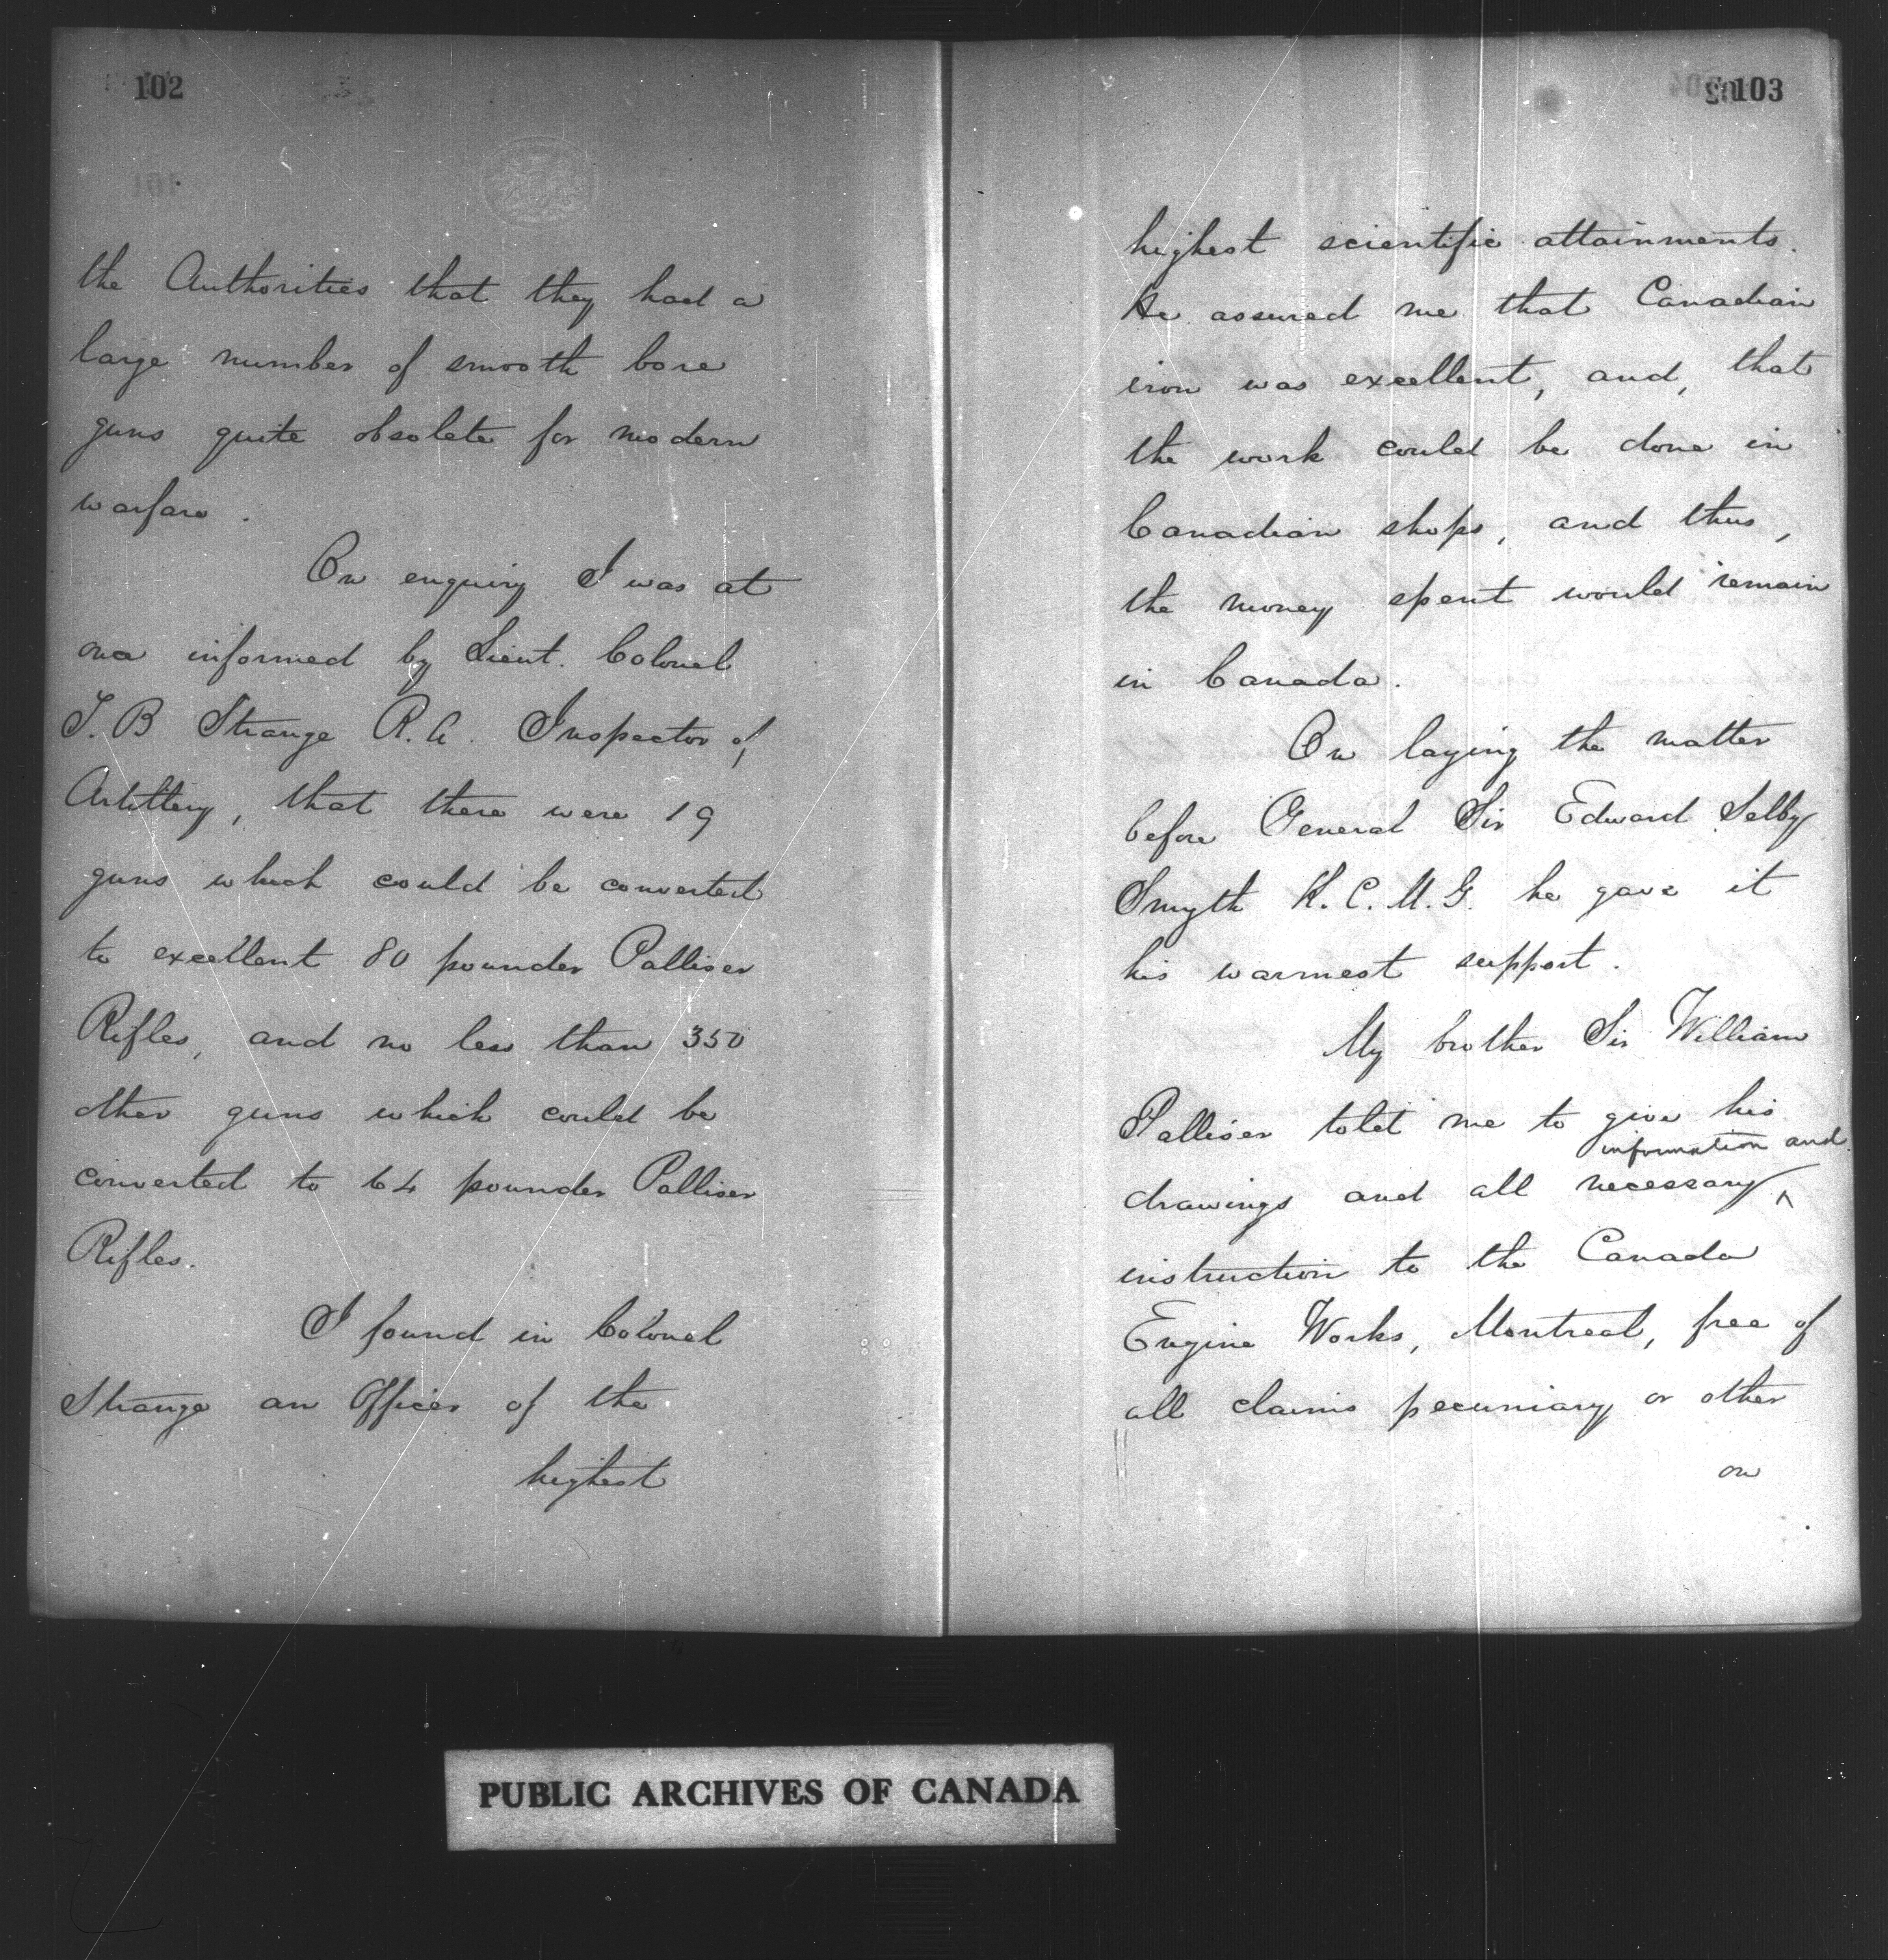 102
the Authorities that they had a
large number of smooth bore
guns quite obsolete for modern
warfare.
On enquiry I was at
once informed by Lieut. Colonel
T. B Strange R.A. Inspector of
Artillery, that there were 19
guns which could be converted
to excellent 80 pounder Palliser
Rifles, and no less than 350
other guns which could be
converted to 64 pounder Palliser
Rifles.
I found in Colonel
Strange an Officer of the
highest
103
highest scientific attainments.
He assured me that Canadian
iron was excellent, and, that
the work could be done in
Canadian shops, and thus,
the money spent would remain
in Canada.
On laying the matter
before General Sir Edward Selby
Smyth K.C.M.G. he gave it
his warmest support.
My brother Sir William
Palliser told me to give his
information and
drawings and all necessary ^
instruction to the Canada
Engine Works, Montreal, free of
all claims pecuniary or other
on
PUBLIC ARCHIVES OF CANADA